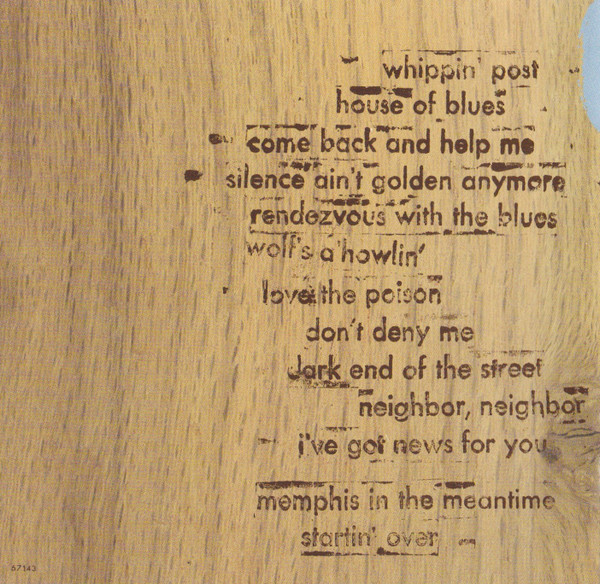 whippin' post
house of blues
come back and help me
silence ain't golden anymore
rendezvous with the blues
wolf's a'howlin'
love the poison
don't deny me
dark end of the street
neighbor, neighbor
i've got news for you
memphis in the meantime
startin' over
67143